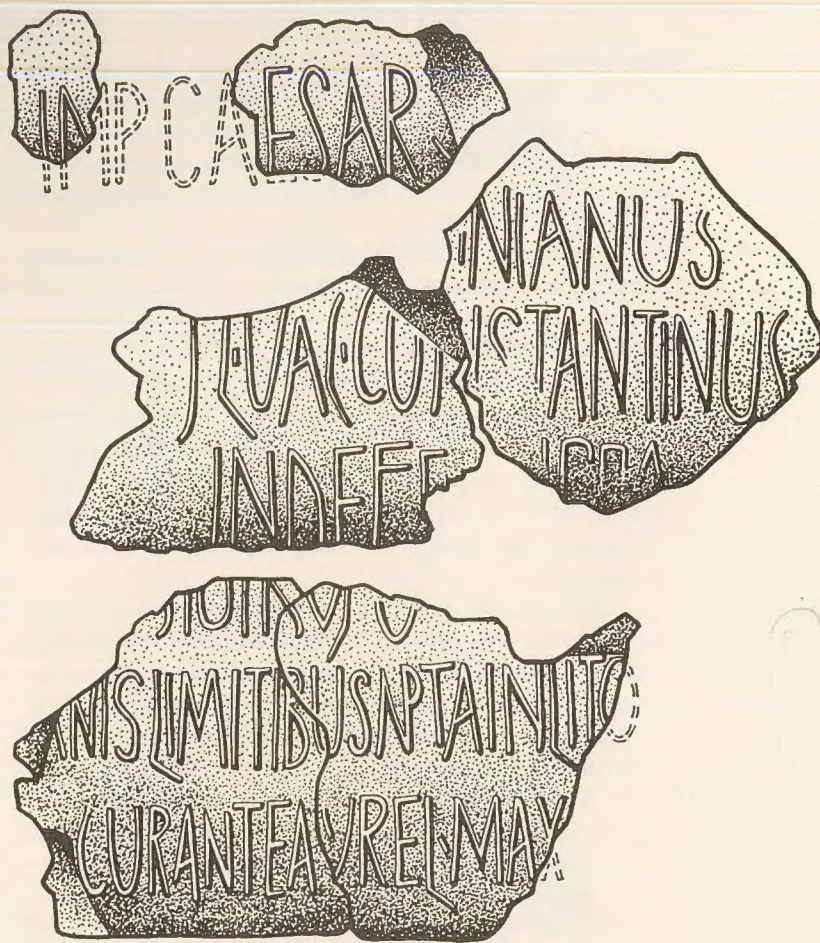 IMP CAESAR
NIANUS
L·UAL·CONSTANTINUS
INDEFE
ANISLIMITIBUSAPTAINLITO
CURANTEAUREL·MAX